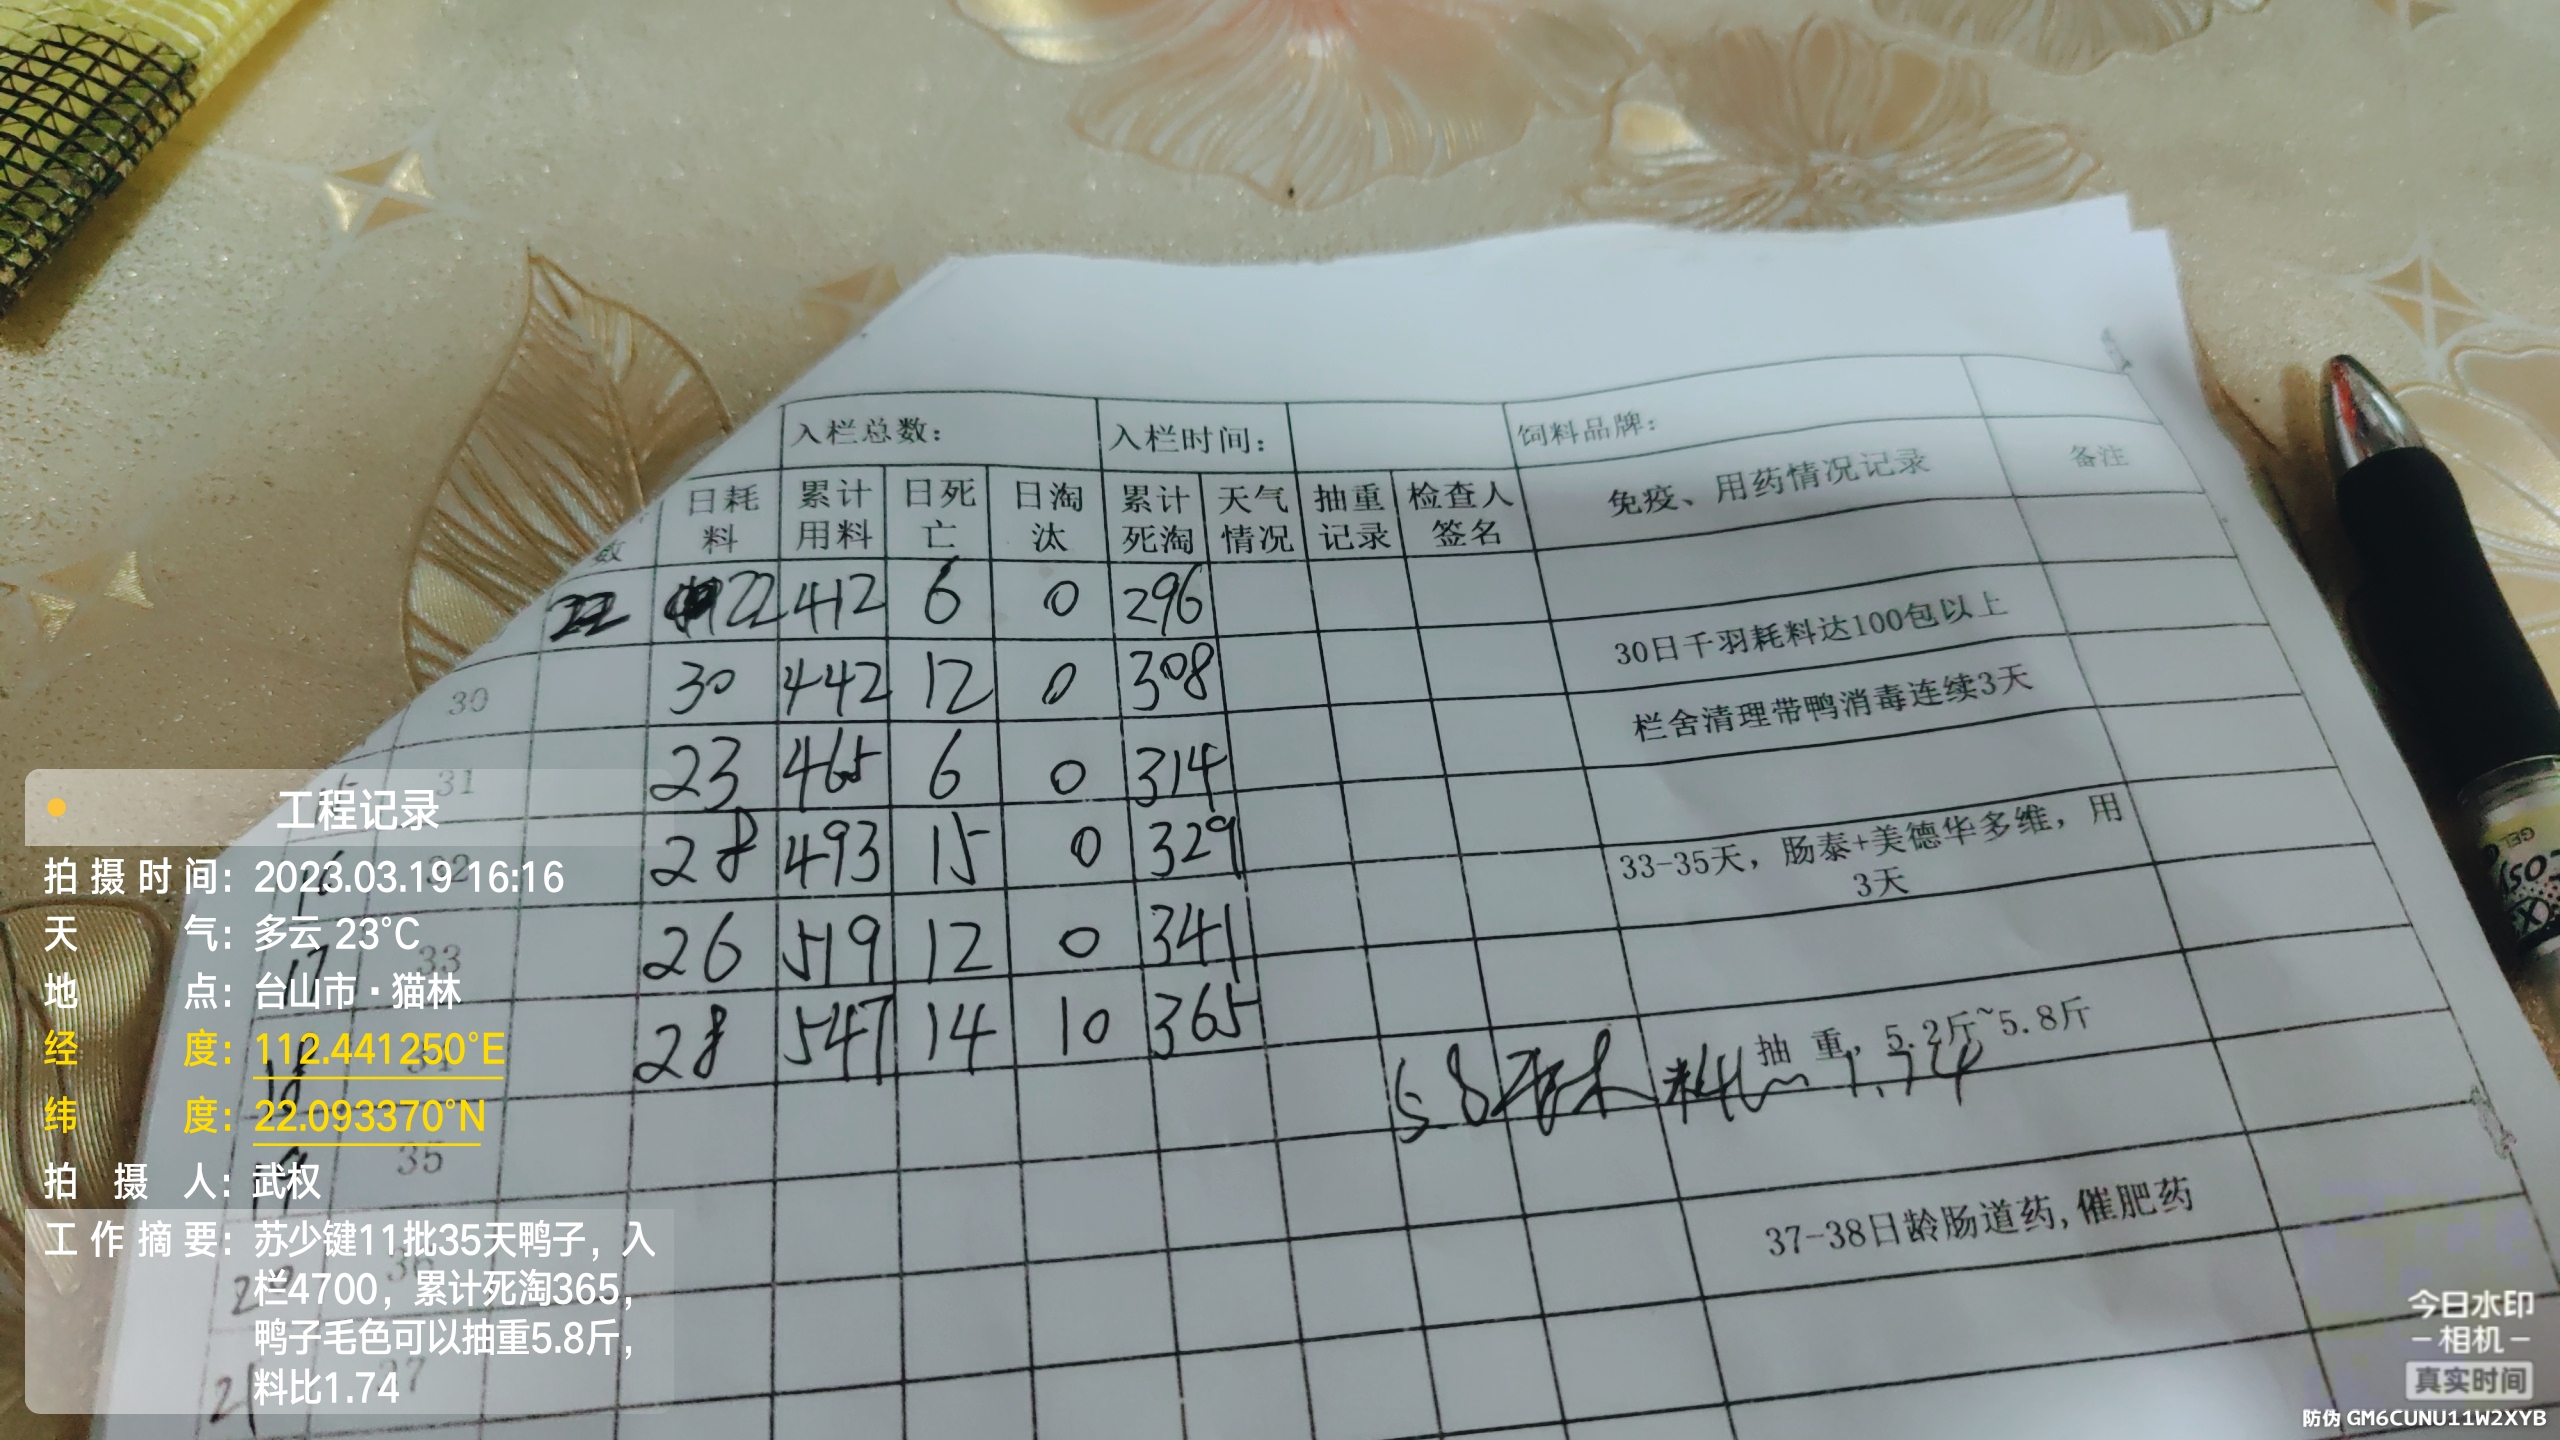 入栏总数：
入栏时间：
饲料品牌：
数
日耗料
累计用料
日死亡
日淘汰
累计死淘
天气情况
抽重记录
检查人签名
免疫、用药情况记录
备注
22 412 6 0 296
30 30 442 12 0 308
30日千羽耗料达100包以上
31 23 465 6 0 314
栏舍清理带鸭消毒连续3天
16 32 28 493 15 0 329
17 33 26 519 12 0 341
33-35天，肠泰+美德华多维，用
3天
18 34 28 547 14 10 365
19 35
抽 重，5.2斤~5.8斤
5.8 料比 1.74
20 36
37-38日龄肠道药，催肥药
21 37
工程记录
拍摄时间：2023.03.19 16:16
天气：多云 23°C
地点：台山市·猫林
经度：112.441250°E
纬度：22.093370°N
拍摄人：武权
工作摘要：苏少键11批35天鸭子，入
栏4700，累计死淘365，
鸭子毛色可以抽重5.8斤，
料比1.74
今日水印
-相机-
真实时间
防伪 GM6CUNU11W2XYB